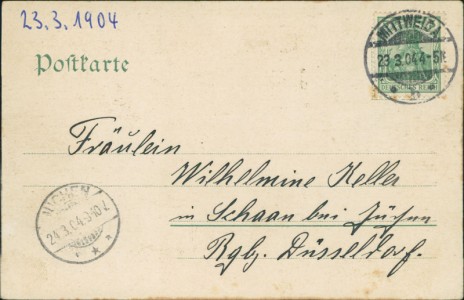 23.3.1904
Postkarte
MITTWEIDA
23 3.04.4-5N
Fräulein
Wilhelmine Keller
in Schaan bei Jüchen
Rgbz. Düsseldorf.
24.3.04.9-10V.